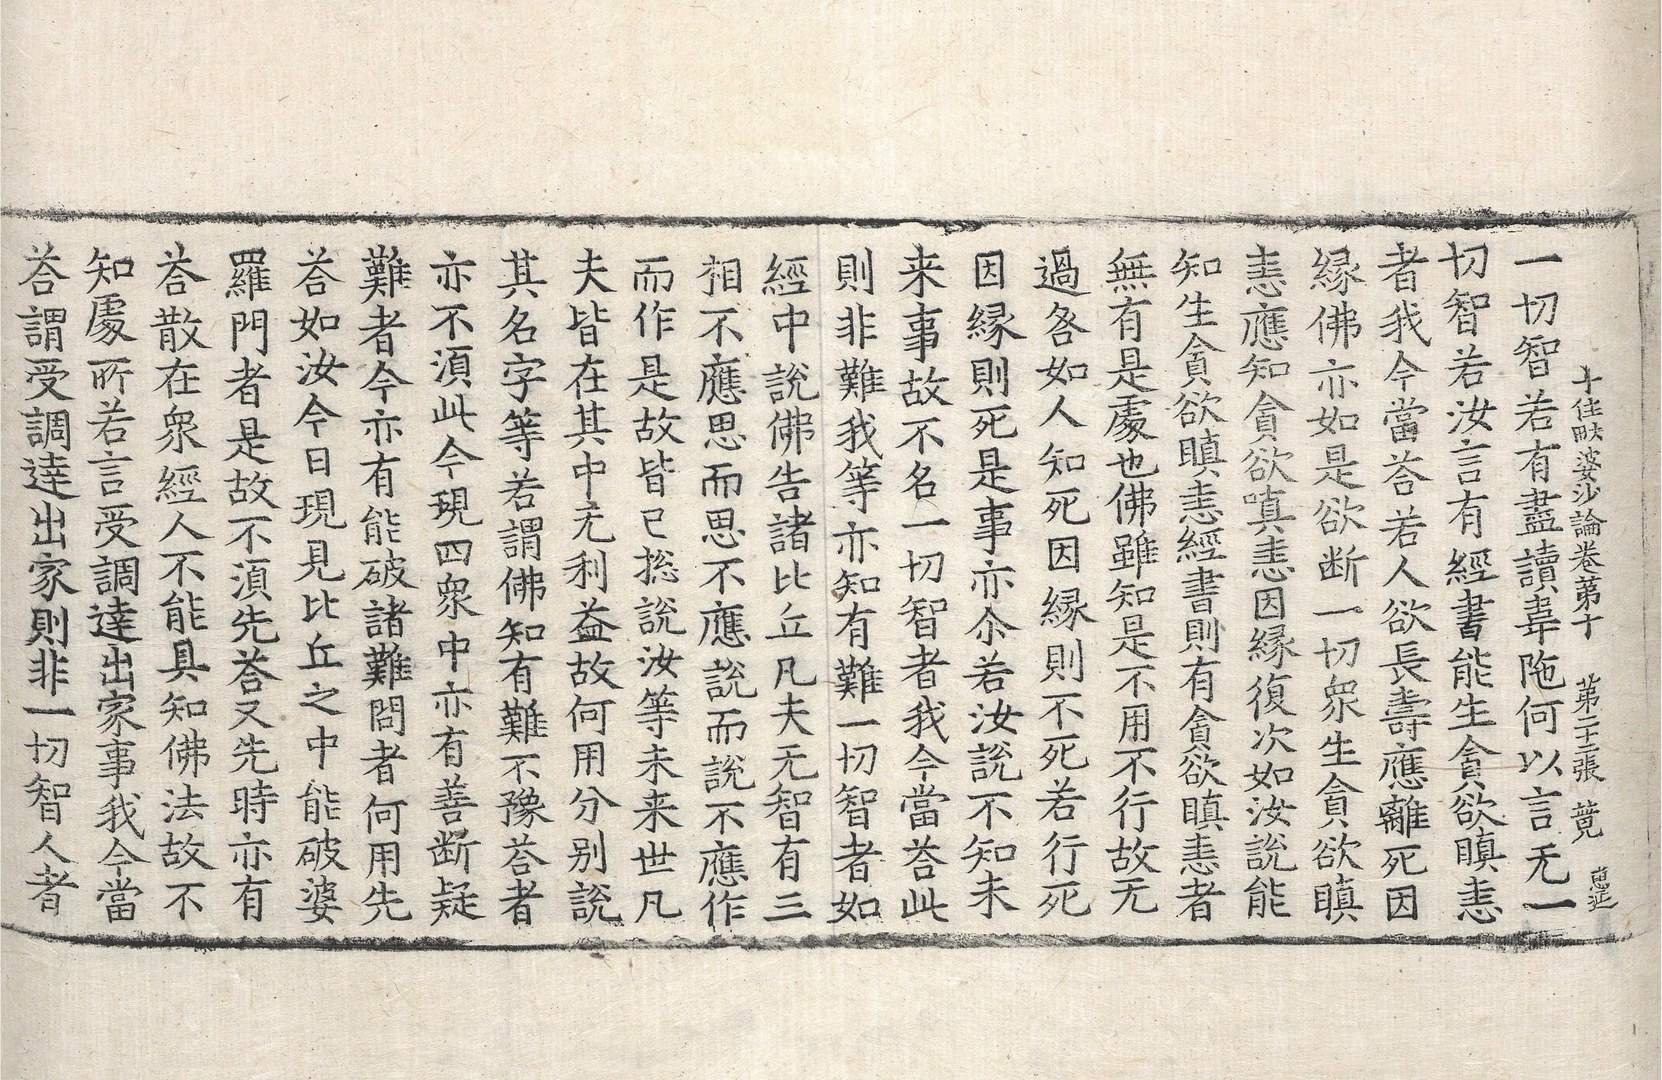 十住毗婆沙論卷苐十　苐二十二張　竟
一切智若有盡讀韋陁何以言无一
切智若汝言有經書能生貪欲瞋恚
者我今當荅若人欲長壽應離死因
縁佛亦如是欲断一切衆生貪欲瞋
恚應知貪欲嗔恚因縁復次如汝説能
知生貪欲瞋恚經書則有貪欲瞋恚者
無有是處也佛雖知是不用不行故无
過咎如人知死因縁則不死若行死
因縁則死是事亦尒若汝說不知未
来事故不名一切智者我今當荅此
則非難我等亦知有難一切智者如
經中說佛告諸比丘凡夫无智有三
相不應思而思不應說而說不應作
而作是故皆已捴說汝等未来世凡
夫皆在其中无利益故何用分别說
其名字等若謂佛知有難不豫荅者
亦不湏此今現四衆中亦有善断疑
難者今亦有能破諸難問者何用先
荅如汝今日現見比丘之中能破婆
羅門者是故不湏先荅又先時亦有
荅散在衆經人不能具知佛法故不
知處所若言受調達出家事我今當
荅謂受調達出家則非一切智人者